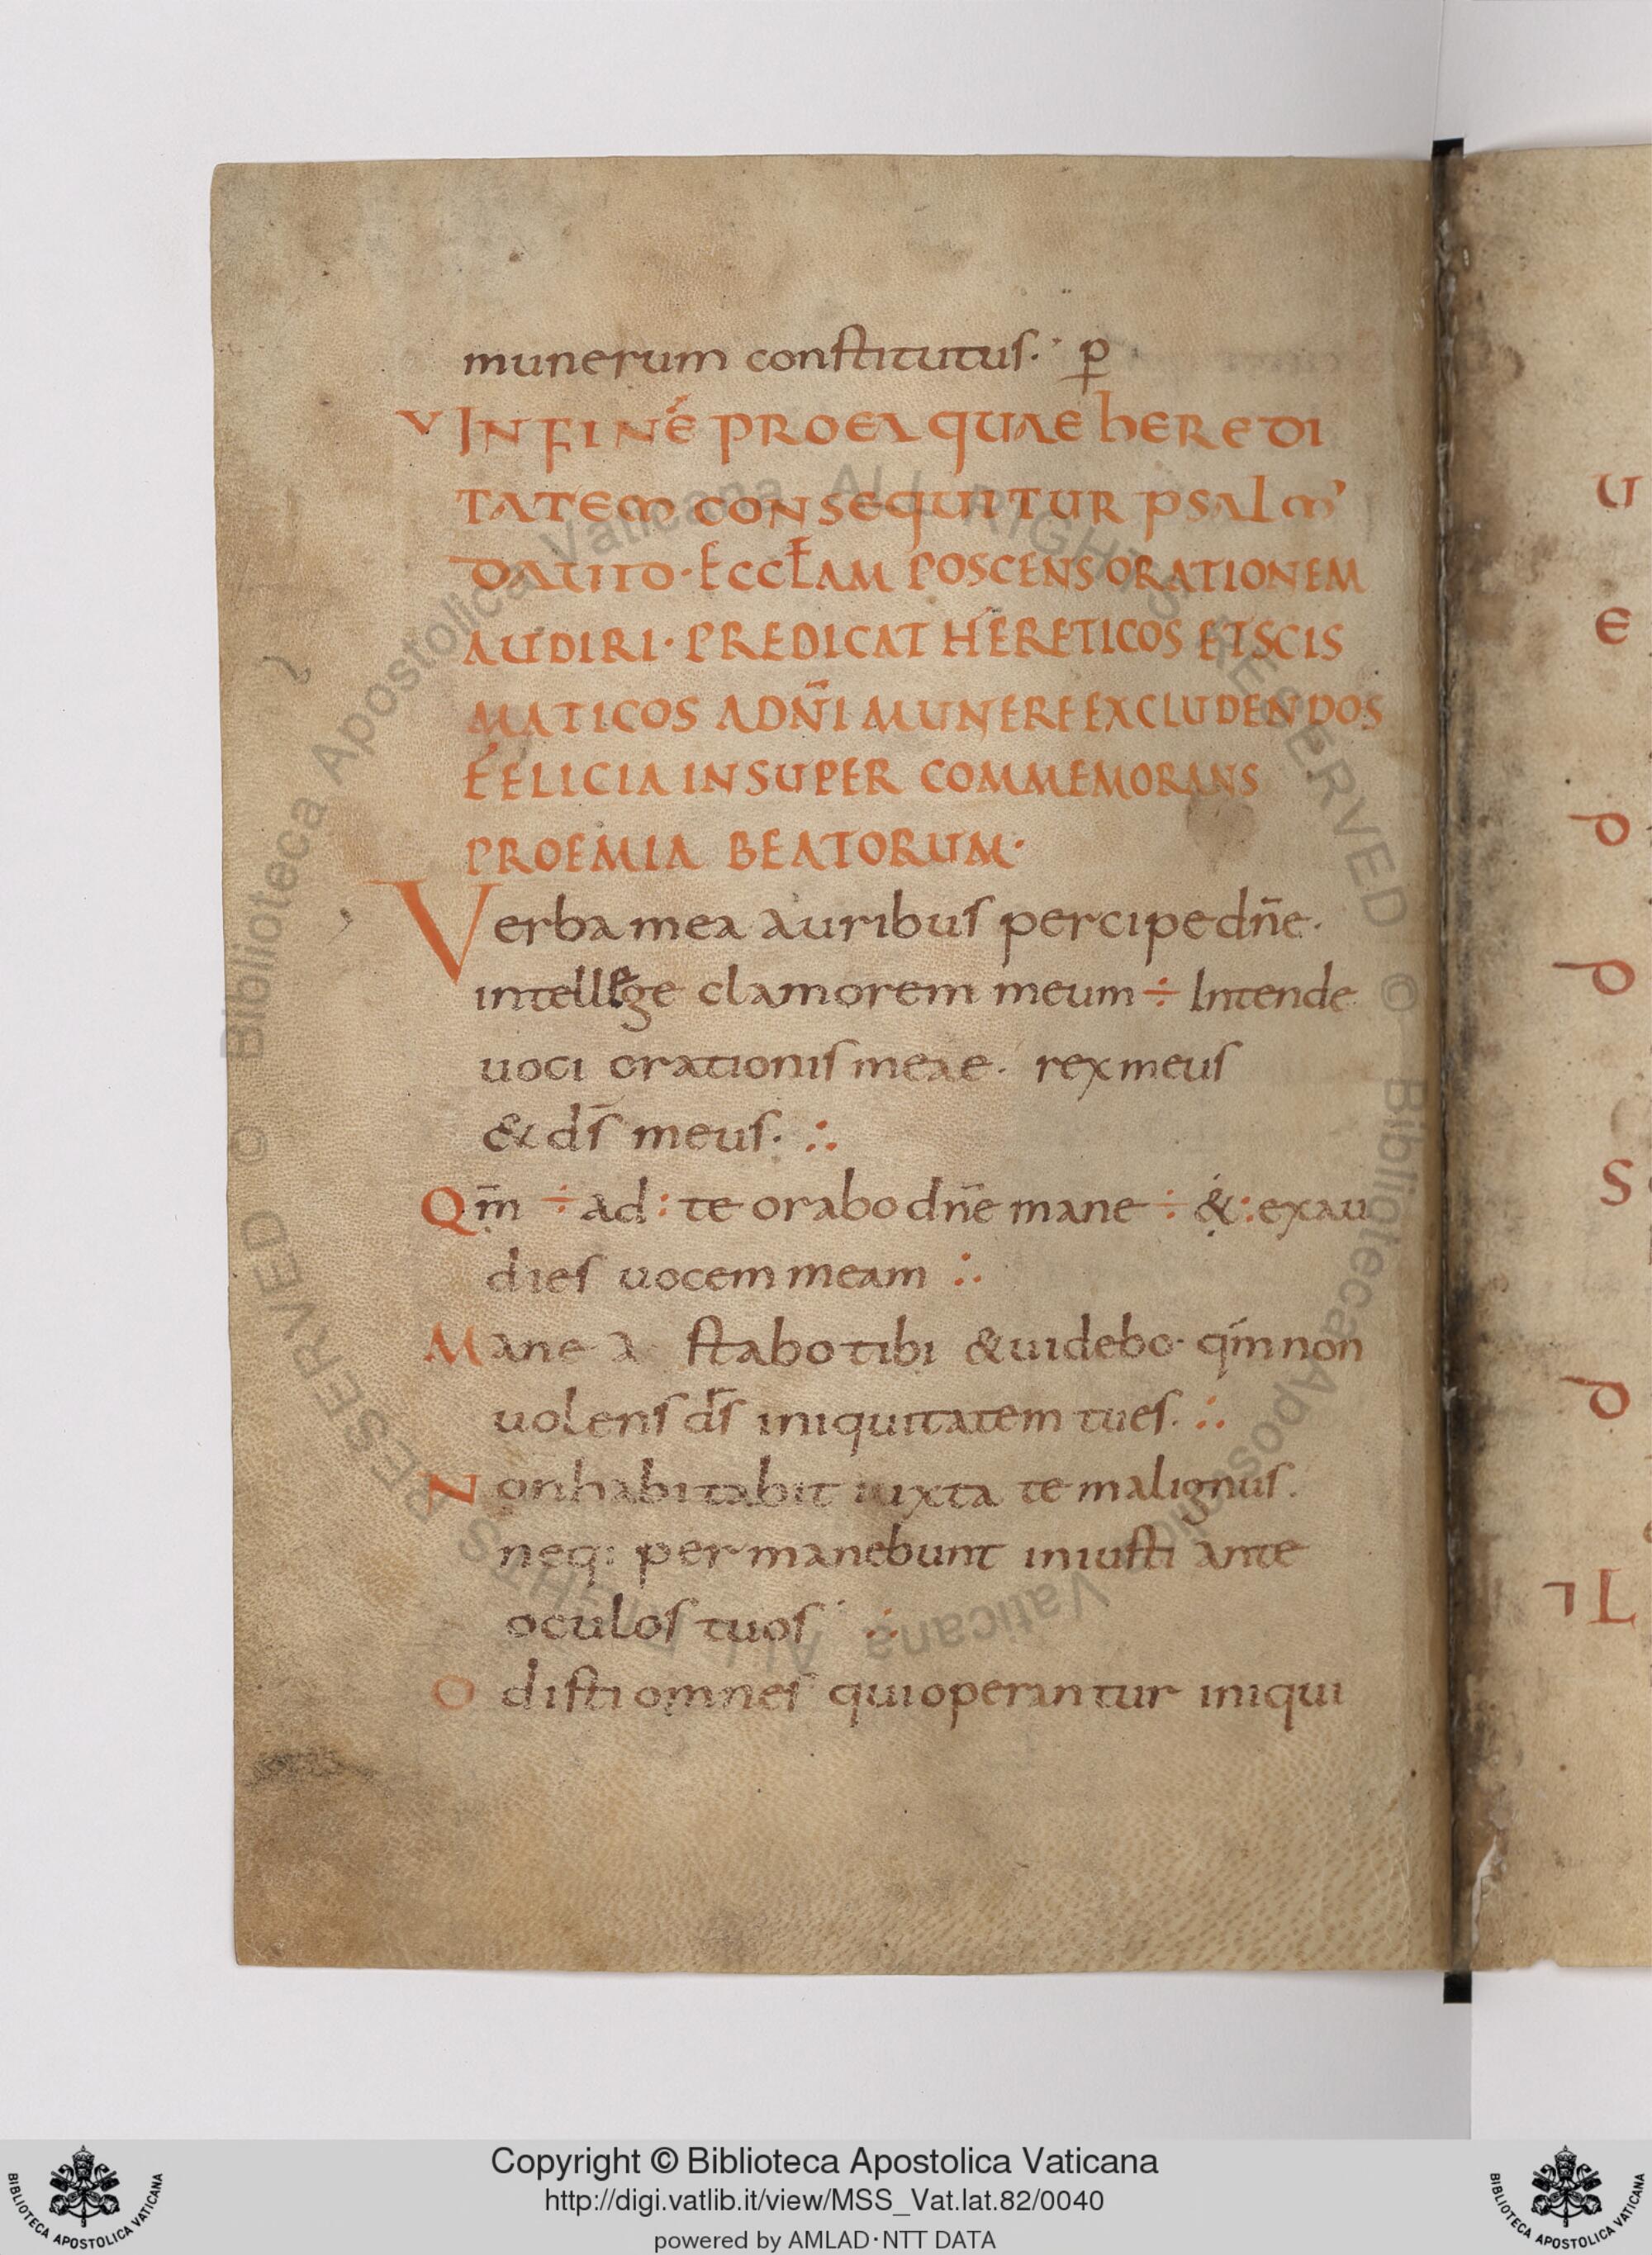 munerum constitutus. ꝑ
V IN FINE᷄ PRO EA QUAE HEREDI
TATEM CONSEQUITUR PSALM'
DAVITO · ECCL̄AM POSCENS ORATIONEM
AUDIRI · PREDICAT HERETICOS ET SCIS
MATICOS A DN̄I MUNERE EXCLUDENDOS
FELICIA INSUPER COMMEMORANS
PROEMIA BEATORUM ·
Verba mea auribus percipe dn̄e.
intellege clamorem meum ÷ Intende
uoci orationis meae. rex meus
& ds̄ meus. ∴
Qm̄ ÷ ad : te orabo dn̄e mane ÷ & : exau
dies uocem meam ∴
Mane a stabo tibi & uidebo · qm̄ non
uolens ds̄ iniquitatem tu es. ∴
Non habitabit iuxta te malignus.
neq: permanebunt iniusti ante
oculos tuos ∴
Odisti omnes qui operantur iniqui
U
E
P
P
S
P
L
Copyright © Biblioteca Apostolica Vaticana
http://digi.vatlib.it/view/MSS_Vat.lat.82/0040
powered by AMLAD·NTT DATA
BIBLIOTECA APOSTOLICA VATICANA
BIBLIOTECA APOSTOLICA VATICANA
© Biblioteca Apostolica Vaticana ALL RIGHTS RESERVED © Biblioteca Apostolica Vaticana ALL RIGHTS RESERVED